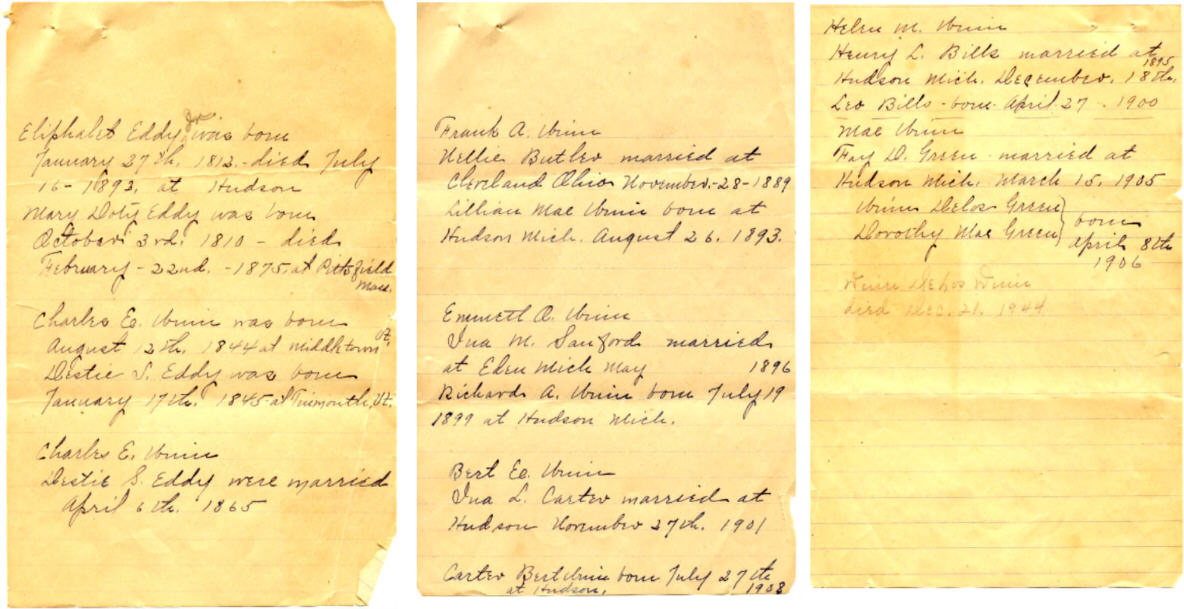 Eliphalet Eddy Jr was born
January 27th, 1812 - died July
16 - 1893, at Hudson
Mary Doty Eddy was born
October 3rd, 1810 - died
February - 22nd. - 1875, at Pittsfield
Mass.
Charles E. Winn was born
August 12th, 1844 at Middletown Vt.
Destie S. Eddy was born
January 17th, 1845 - at Tinmouth, Vt.
Charles E. Winn
Destie S. Eddy were married
April 6th. 1865
Frank A. Winn
Nellie Butler married at
Cleveland Ohio November - 28 - 1889
Lillian Mae Winn born at
Hudson Mich. August 26, 1893.
Emmett A. Winn
Ina M. Sanford married
at Eden Mich May 1896
Richard A. Winn born July 19
1899 at Hudson Mich.
Bert E. Winn
Ina L. Carter married at
Hudson November 27th, 1901
Carter Bert Winn born July 27th
at Hudson, 1908
Helen M. Winn
Henry L. Bills married at
Hudson Mich. December, 18th, 1895
Leo Bills - born April 27 - 1900
Mae Winn
Fay D. Green - married at
Hudson Mich, March 15, 1905
Winn Delos Green
Dorothy Mae Green } born
April 8th
1906
Winn Delos Winn
died Dec. 21, 1944